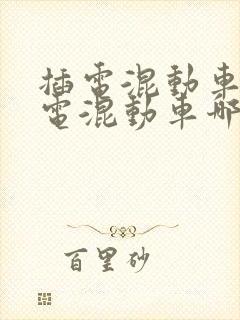 插電混動車
電混動車哪
百里砂